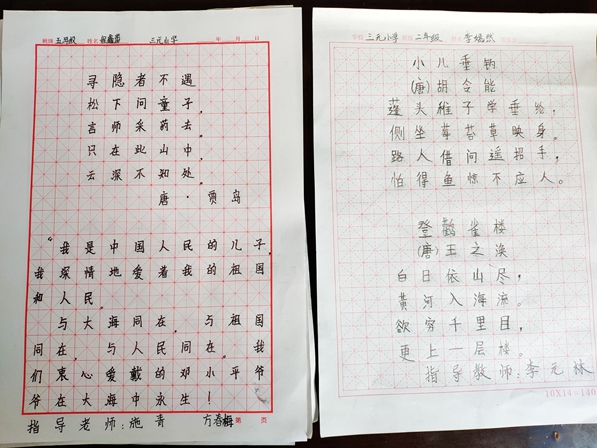 班级 五年级 姓名 三元小学 年 月 日
寻隐者不遇
松下问童子,
言师采药去。
只在此山中,
云深不知处。
唐·贾岛
"我是中国人民的儿子,
我深情地爱着我的祖国
和人民。
与大海同在,与祖国
同在,与人民同在。我
们衷心爱戴的邓小平爷
爷在大海中永生!
指导老师:施青 方春梅 第 页
学校 三元小学 班级 二年级 姓名 李嫣然
小儿垂钓
(唐)胡令能
蓬头稚子学垂纶,
侧坐莓苔草映身。
路人借问遥招手,
怕得鱼惊不应人。
登鹳雀楼
(唐)王之涣
白日依山尽,
黄河入海流。
欲穷千里目,
更上一层楼。
指导教师:李元林
10X14=140